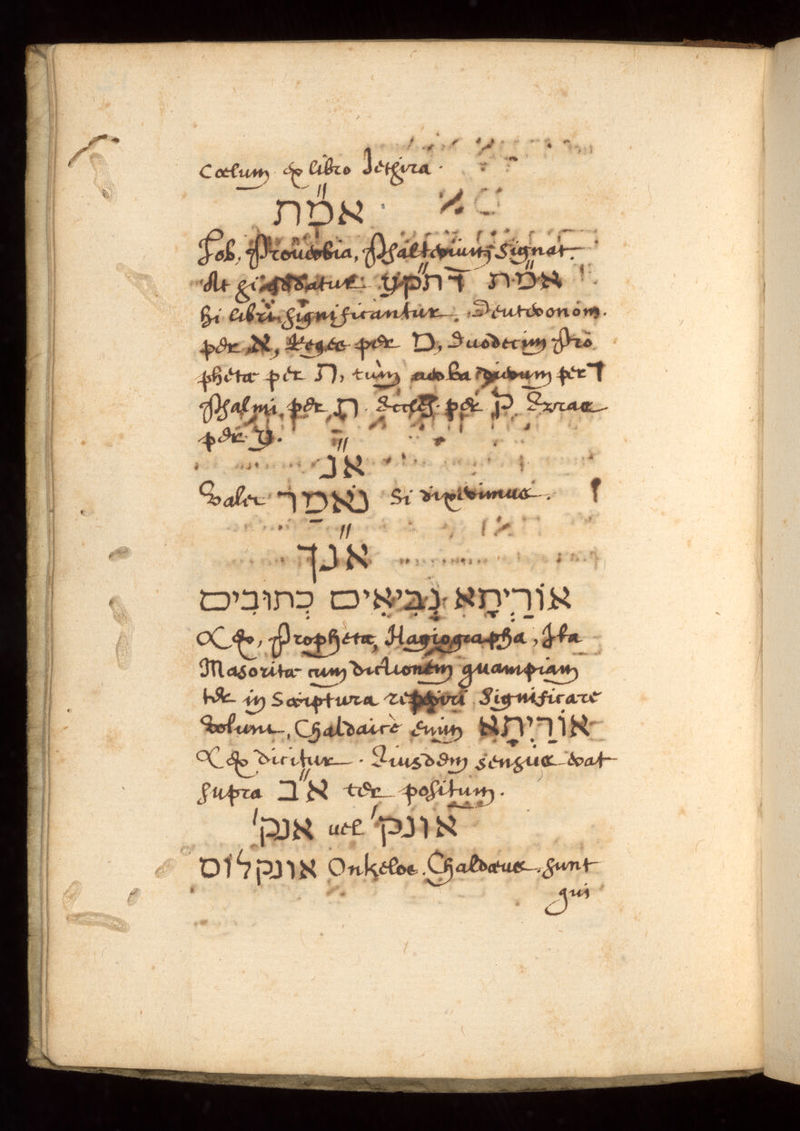 Coelum ex libro Jetzira.
אמ״ת
Job, Proverbia, Psalterium Signat.
At si אמ״ת דתק״ע
hi libri significantur. Deuteronom.
per א, Reges per מ, Duodecim Pro
phetæ per ת, tum per ד
Psalmi, per ת Eccles. per ק, Ezrae
per ע.
אנ״
Valet נֹאמַר Si dixerimus.
אנ״ך
אוֹרַיְתָא נְבִיאִים כְתוּבִים
Lex, Prophetæ, Hagiographa, Ita
Masoritæ cum dictionem quampiam
ter in Scriptura reperiri Significare
volunt, Chaldaicè enim אוֹרַיְתָא
Lex dicitur. Eiusdem sensus erat
supra א״ב ter positum.
אונק׳ uel אנק׳
אונקלוס Onkelos. Chaldæus, sunt
qui